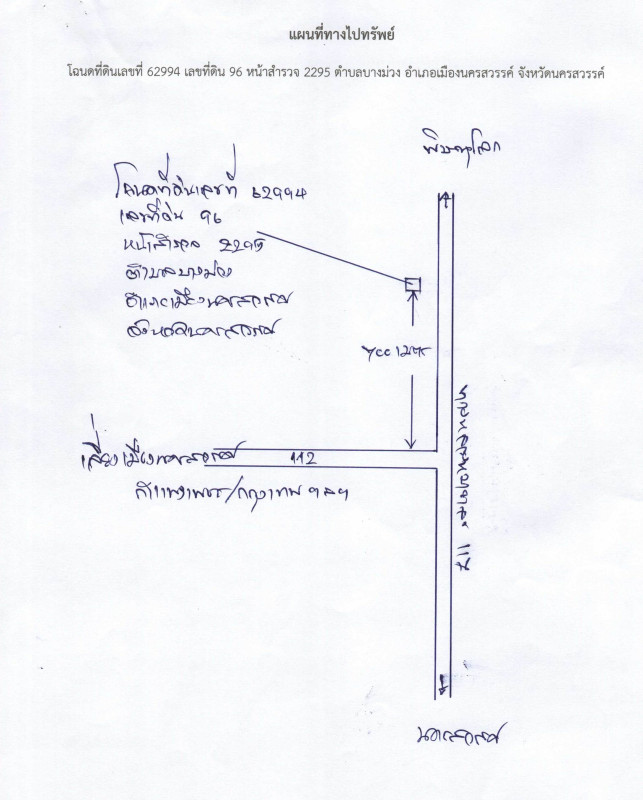 แผนที่ทางไปทรัพย์
โฉนดที่ดินเลขที่ 62994 เลขที่ดิน 96 หน้าสำรวจ 2295 ตำบลบางม่วง อำเภอเมืองนครสวรรค์ จังหวัดนครสวรรค์
พิษณุโลก
โฉนดที่ดินเลขที่ 62994
เลขที่ดิน 96
หน้าสำรวจ 2295
ตำบลบางม่วง
อำเภอเมืองนครสวรรค์
จังหวัดนครสวรรค์
เมตร
เลี่ยงเมืองนครสวรรค์ 112
กำแพงเพชร/กรุงเทพฯ
ทางหลวงหมายเลข 117
นครสวรรค์